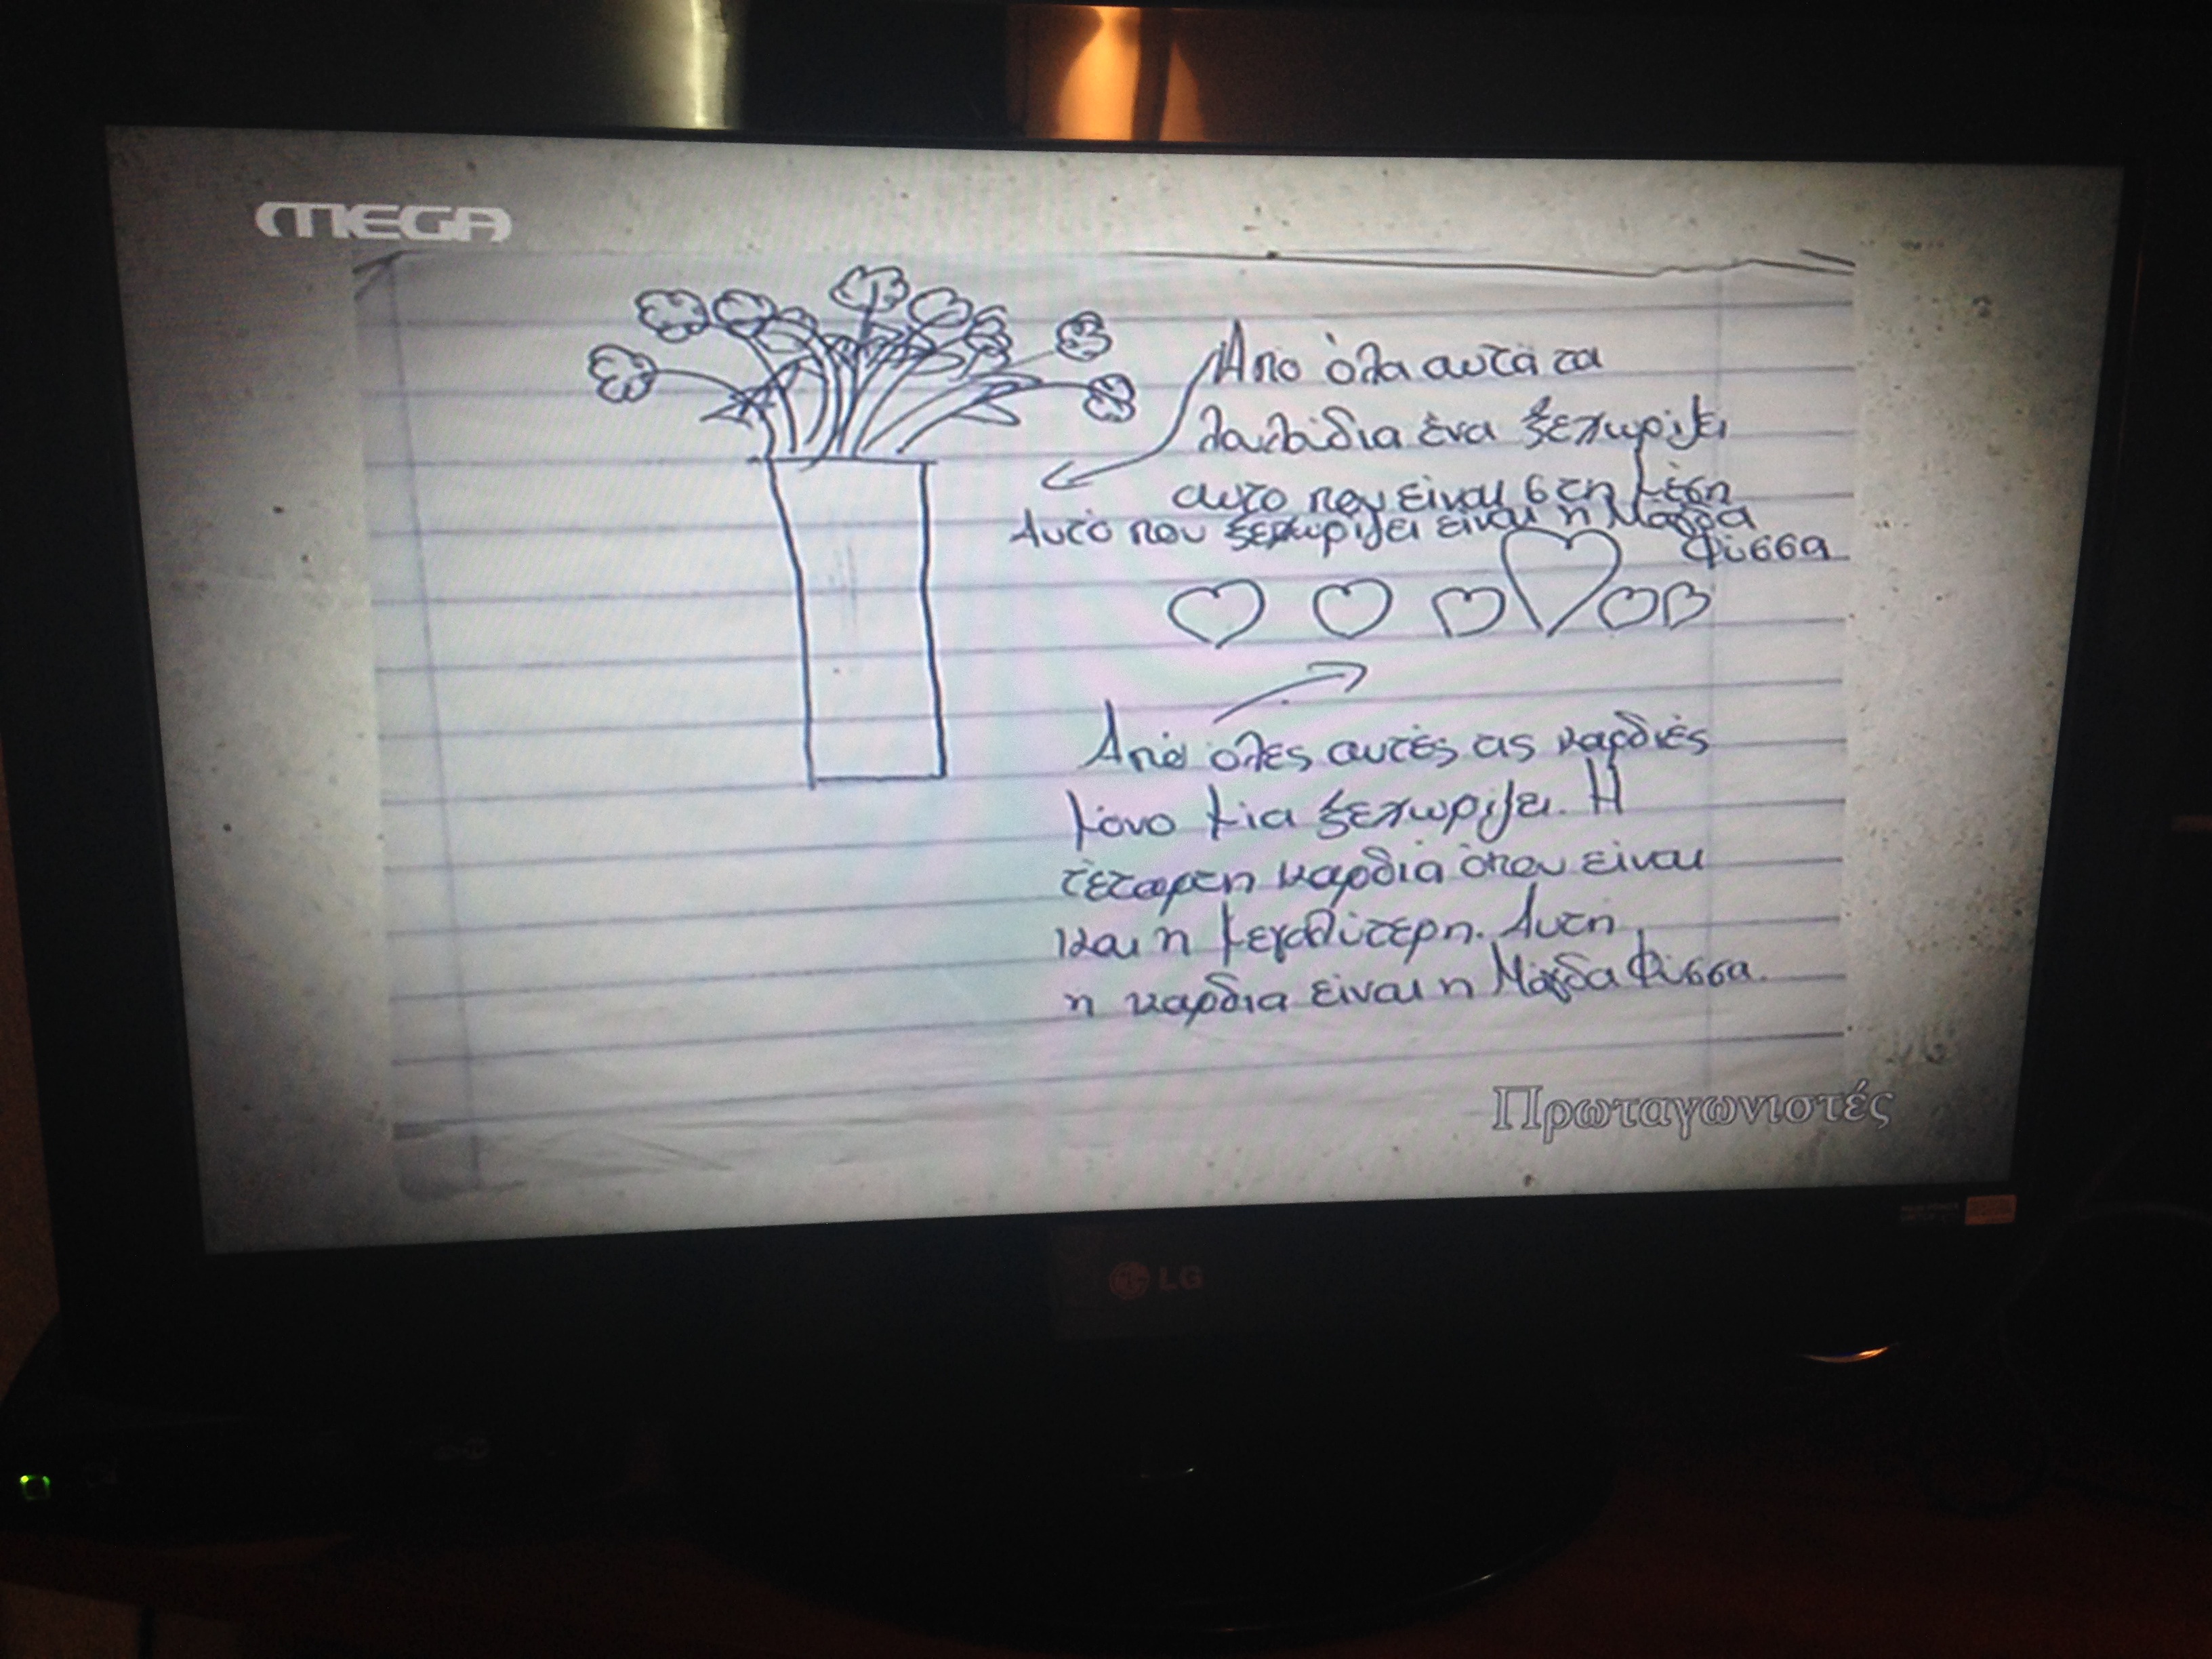 MEGA
Από όλα αυτά τα
λουλούδια ένα ξεχωρίζει
αυτο που είναι στη μέση
Αυτό που ξεχωρίζει είναι η Μάγδα
Φύσσα
Από όλες αυτές τις καρδιές
μόνο μία ξεχωρίζει. Η
τέταρτη καρδιά όπου είναι
και η μεγαλύτερη. Αυτη
η καρδια είναι η Μάγδα Φύσσα.
Πρωταγωνιστές
LG